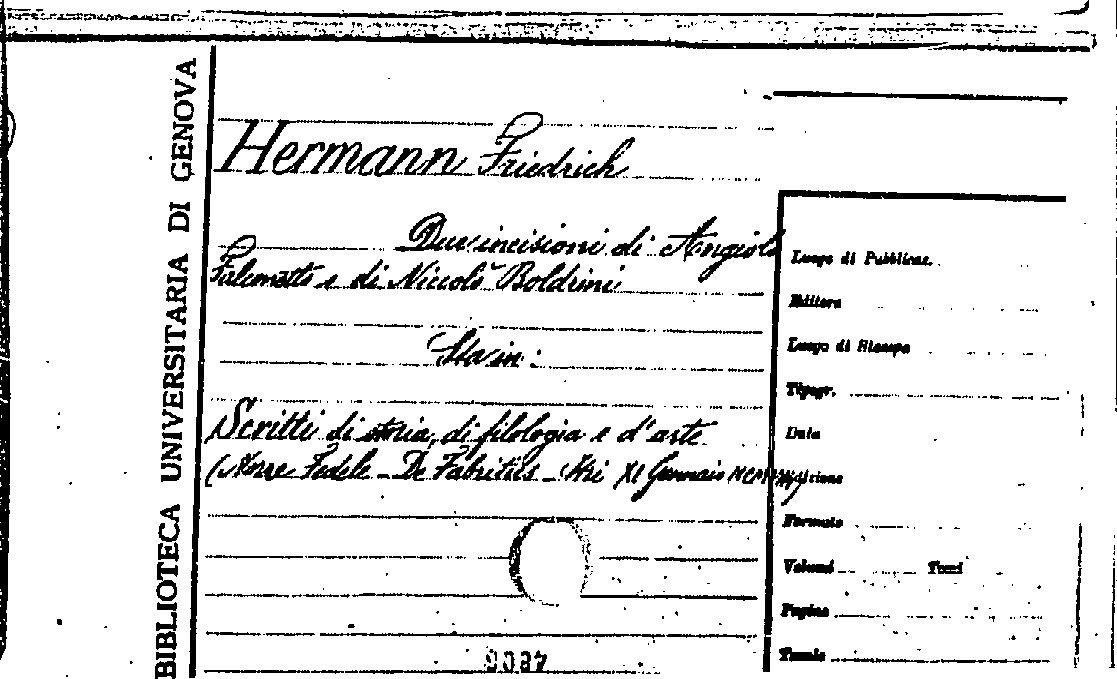 BIBLIOTECA UNIVERSITARIA DI GENOVA
Hermann Friedrich
Due incisioni di Angiolo
Falconetto e di Niccolò Boldrini
Sta in:
Scritti di storia, di filologia e d'arte
(Nozze Fedele - De Fabritiis - XI Gennaio
Luogo di Pubblicaz.
Editore
Luogo di Stampa
Tipogr.
Data
Edizione
Formato
Volumi Tomi
Pagine
Tavole